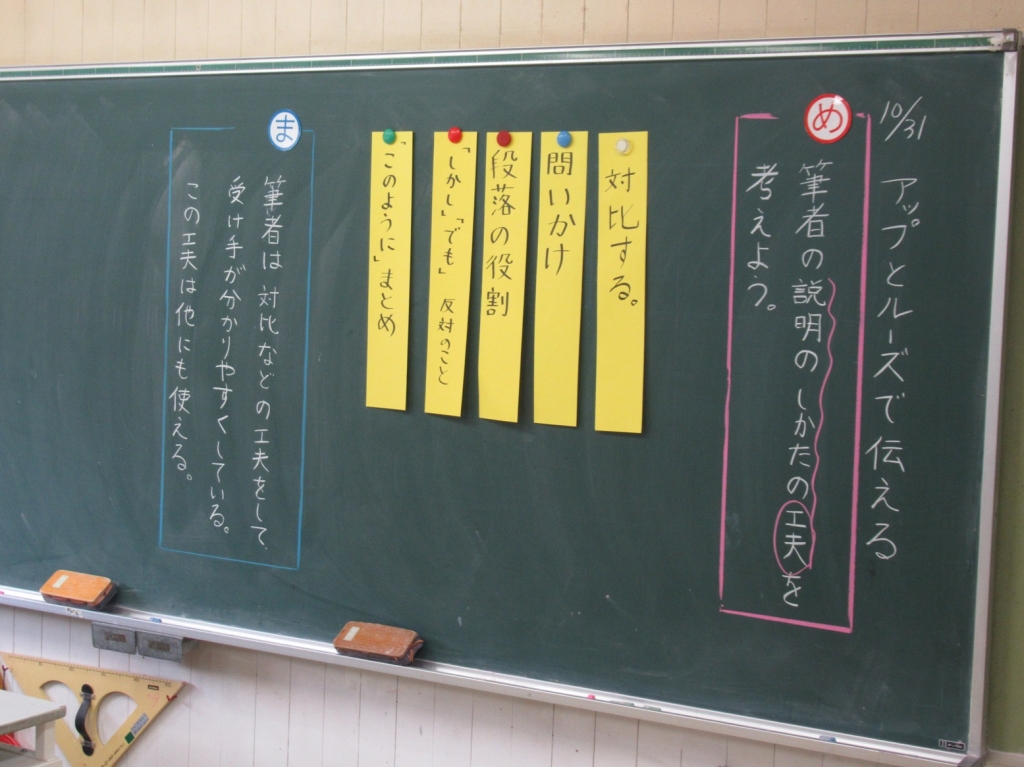 10/31
アップとルーズで伝える
め
筆者の説明のしかたの工夫を
考えよう。
対比する。
問いかけ
段落の役割
「しかし」「でも」 反対のこと
「このように」まとめ
ま
筆者は対比などの工夫をして、
受け手が分かりやすくしている。
この工夫は他にも使える。